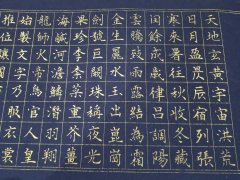 天地玄黃宇宙洪荒
日月盈昃辰宿列張
寒來暑往秋收冬藏
閏餘成歲律呂調陽
雲騰致雨露結爲霜
金生麗水玉出崑崗
劍號巨闕珠稱夜光
果珍李柰菜重芥薑
海鹹河淡鱗潛羽翔
龍師火帝鳥官人皇
始製文字乃服衣裳
推位